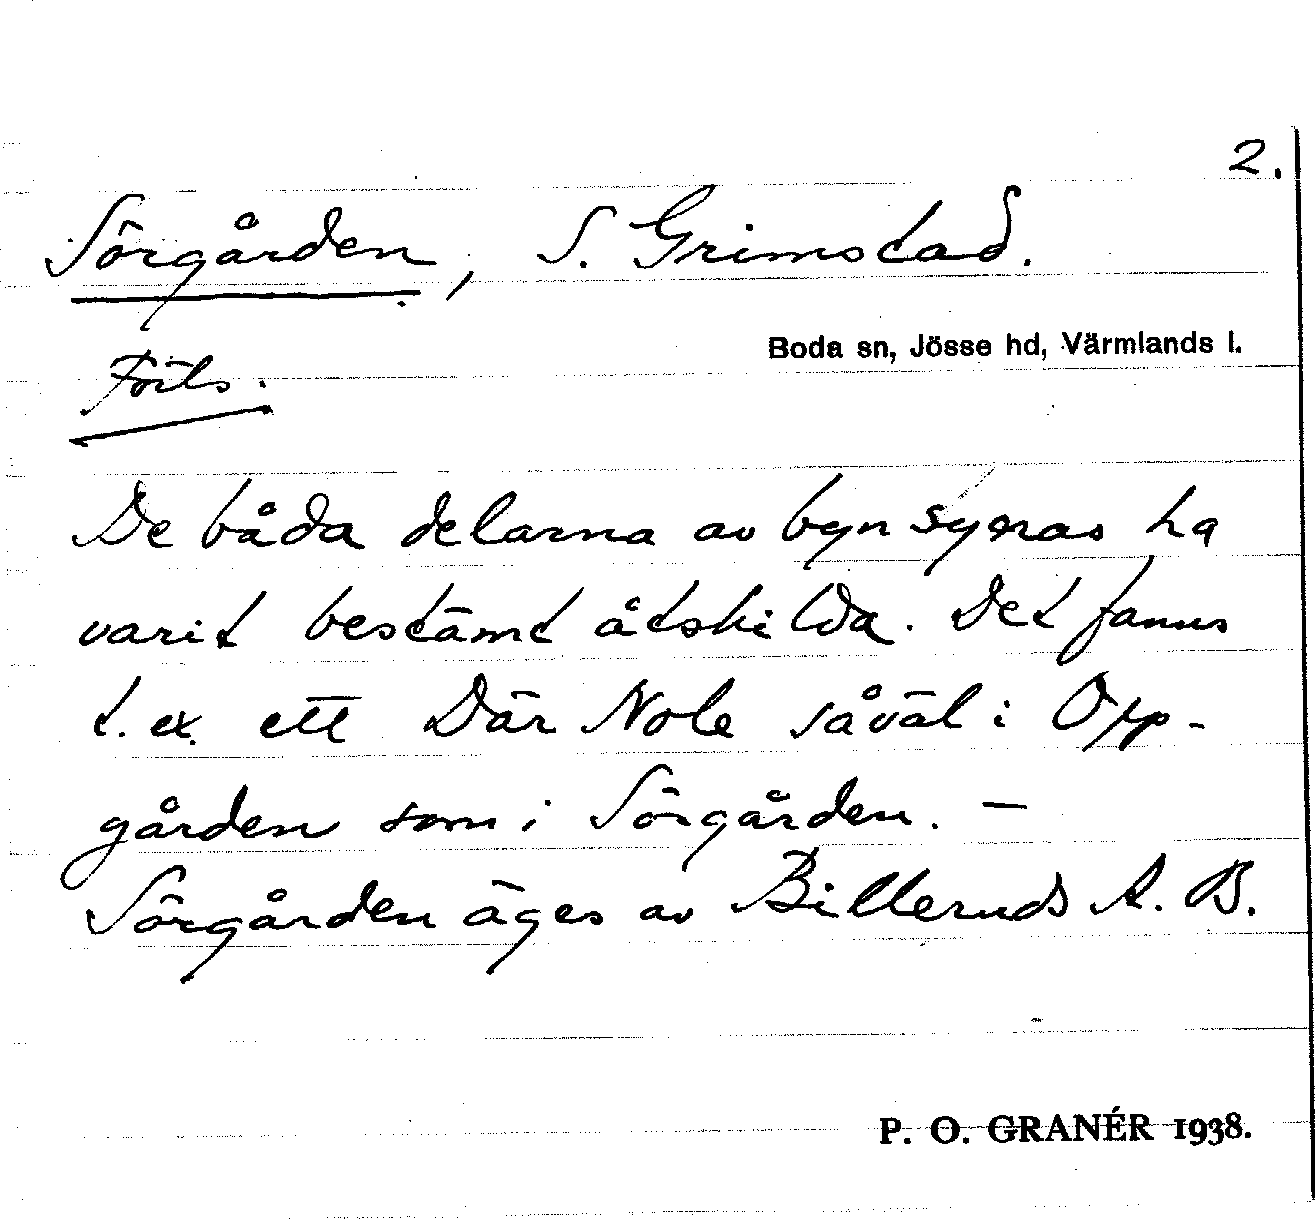 2.
Sörgården, S. Grimstad.
Boda sn, Jösse hd, Värmlands l.
Forts.
De båda delarna av byn synas ha
varit bestämt åtskilda. Det fanns
t. ex. ett Där Nole såväl i Opp-
gården som i Sörgården. —
Sörgården äges av Billeruds A. B.
P. O. GRANÉR 1938.